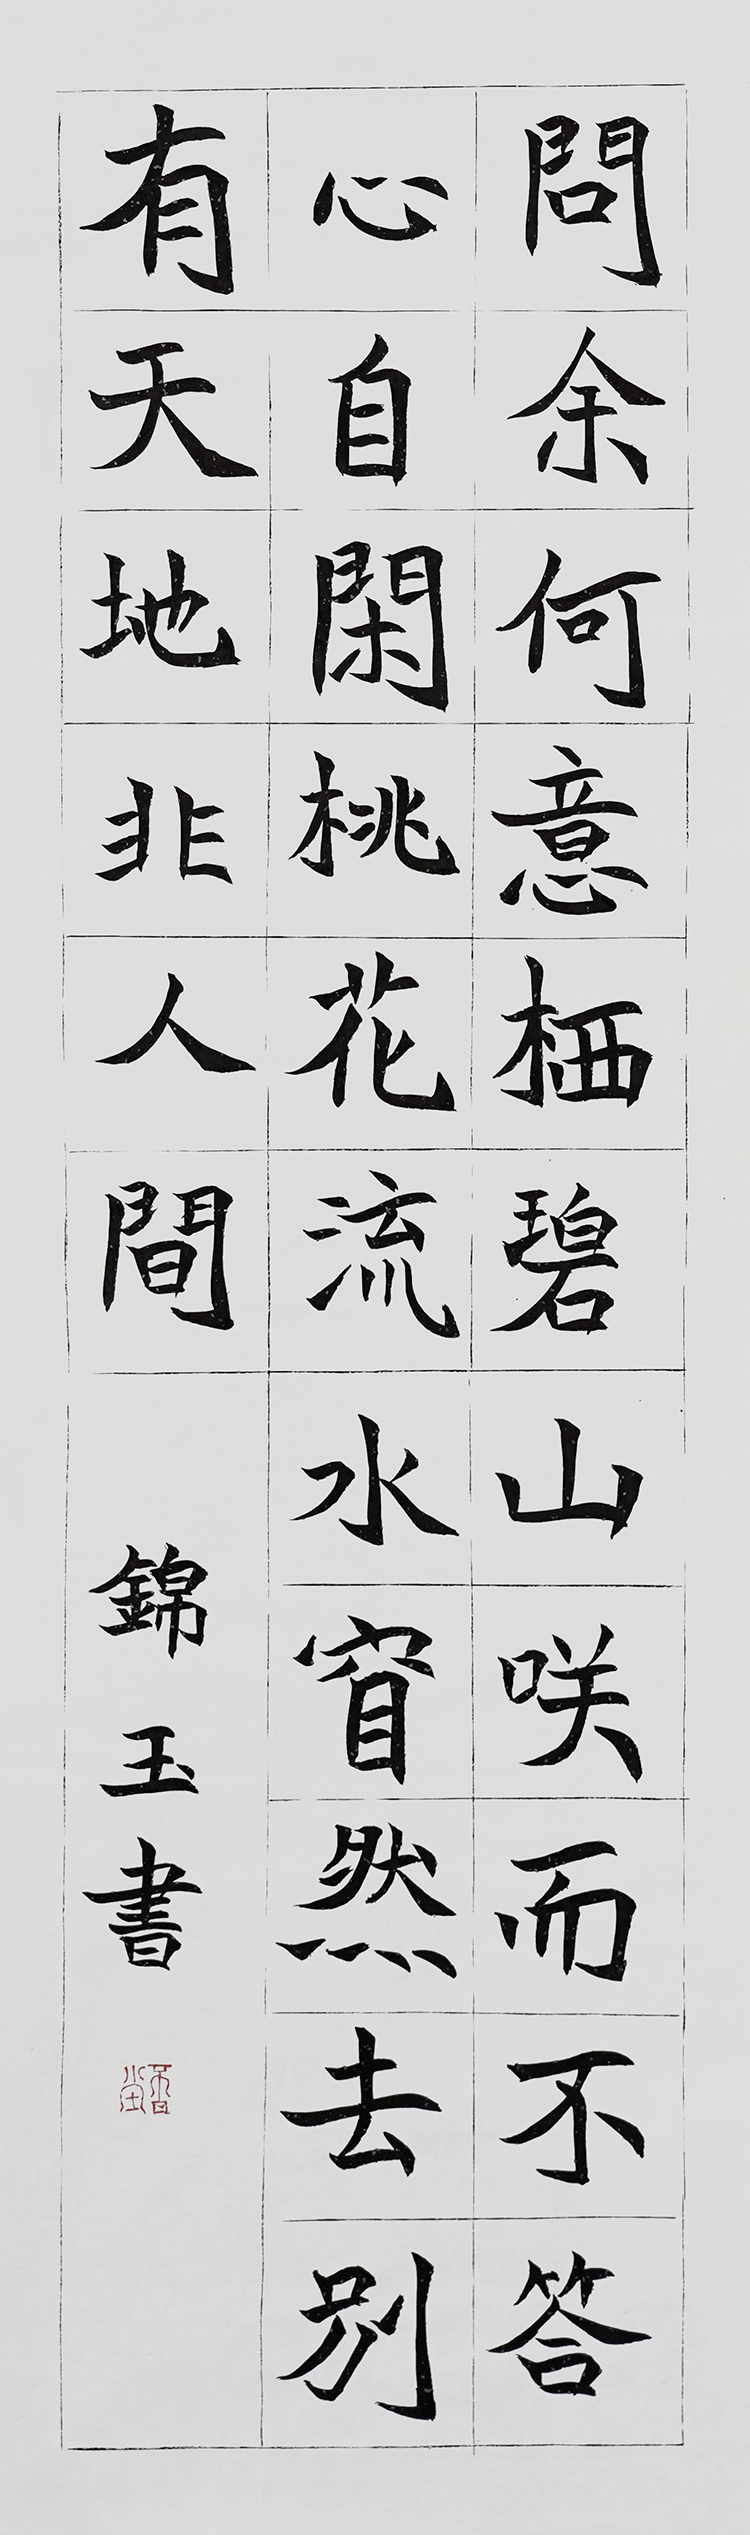 問余何意栖碧山咲而不答
心自閑桃花流水窅然去別
有天地非人間
錦玉書